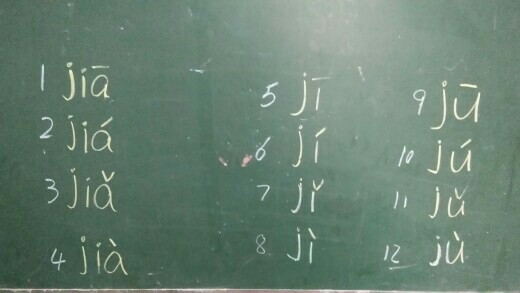 1 jiā
2 jiá
3 jiǎ
4 jià
5 jī
6 jí
7 jǐ
8 jì
9 jū
10 jú
11 jǔ
12 jù